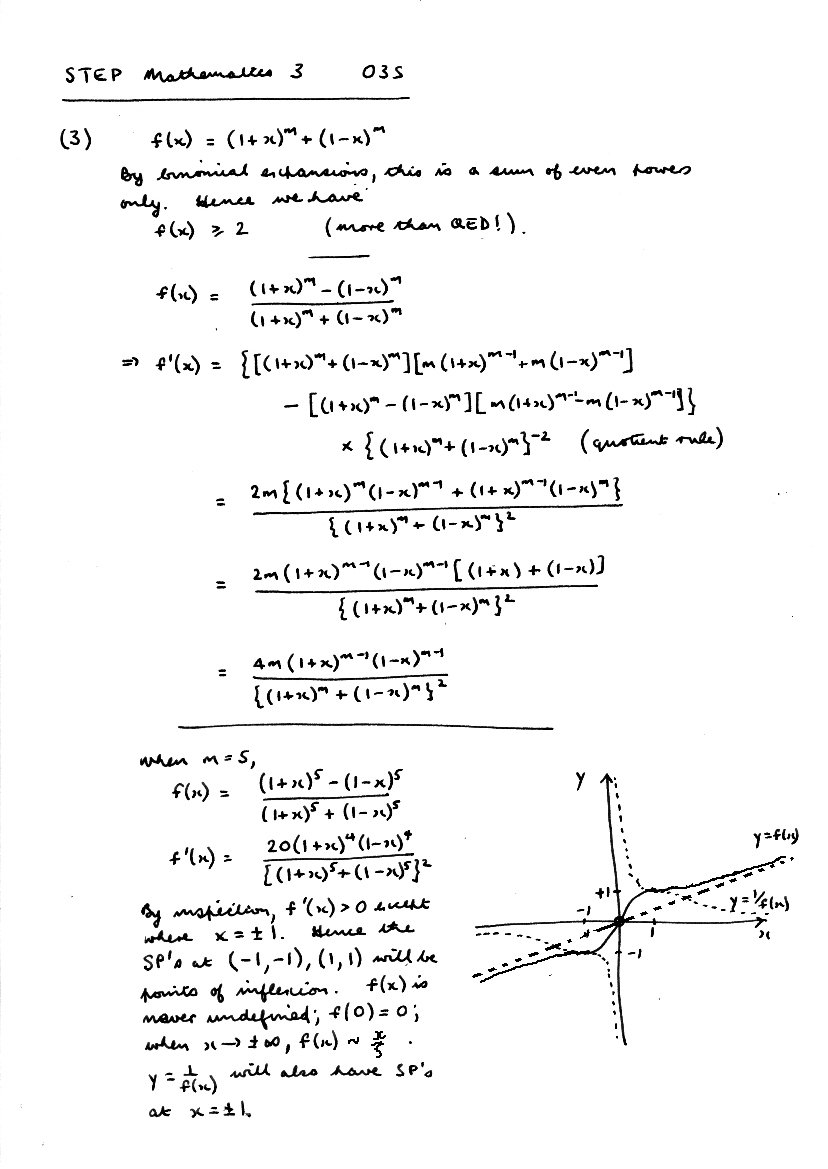 STEP Mathematics 3 03S
(3) f(x) = (1+x)^m + (1-x)^m
By binomial expansions, this is a sum of even powers
only. Hence we have
f(x) ≥ 2 (more than QED!).
f(x) = ((1+x)^m - (1-x)^m) / ((1+x)^m + (1-x)^m)
⇒ f'(x) = {[(1+x)^m + (1-x)^m][m(1+x)^{m-1} + m(1-x)^{m-1}]
- [(1+x)^m - (1-x)^m][m(1+x)^{m-1} - m(1-x)^{m-1}]}
× {(1+x)^m + (1-x)^m}^{-2} (quotient rule)
= 2m{(1+x)^m (1-x)^{m-1} + (1+x)^{m-1} (1-x)^m} / {(1+x)^m + (1-x)^m}^2
= 2m(1+x)^{m-1} (1-x)^{m-1} [(1+x) + (1-x)] / {(1+x)^m + (1-x)^m}^2
= 4m(1+x)^{m-1} (1-x)^{m-1} / {(1+x)^m + (1-x)^m}^2
when m = 5,
f(x) = ((1+x)^5 - (1-x)^5) / ((1+x)^5 + (1-x)^5)
f'(x) = 20(1+x)^4 (1-x)^4 / [(1+x)^5 + (1-x)^5}^2
By inspection, f'(x) > 0 except
where x = ±1. Hence the
SP's at (-1,-1), (1,1) will be
points of inflexion. f(x) is
never undefined; f(0) = 0;
when x → ±∞, f(x) ~ x/5 .
y = 1/f(x) will also have SP's
at x = ±1.
y
y=f(x)
+1
-1
1
y=1/f(x)
x
-1